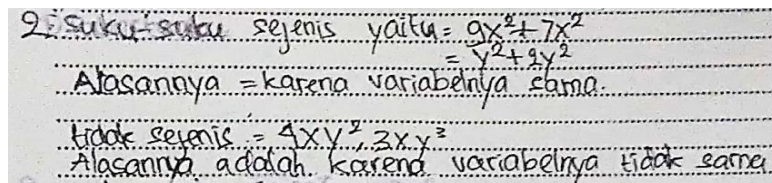 2. Suku-suku sejenis yaitu = 9x² + 7x²
= y² + 2y²
Alasannya = karena variabelnya sama.
tidak sejenis = 4xy², 3xy³
Alasannya adalah karena variabelnya tidak sama